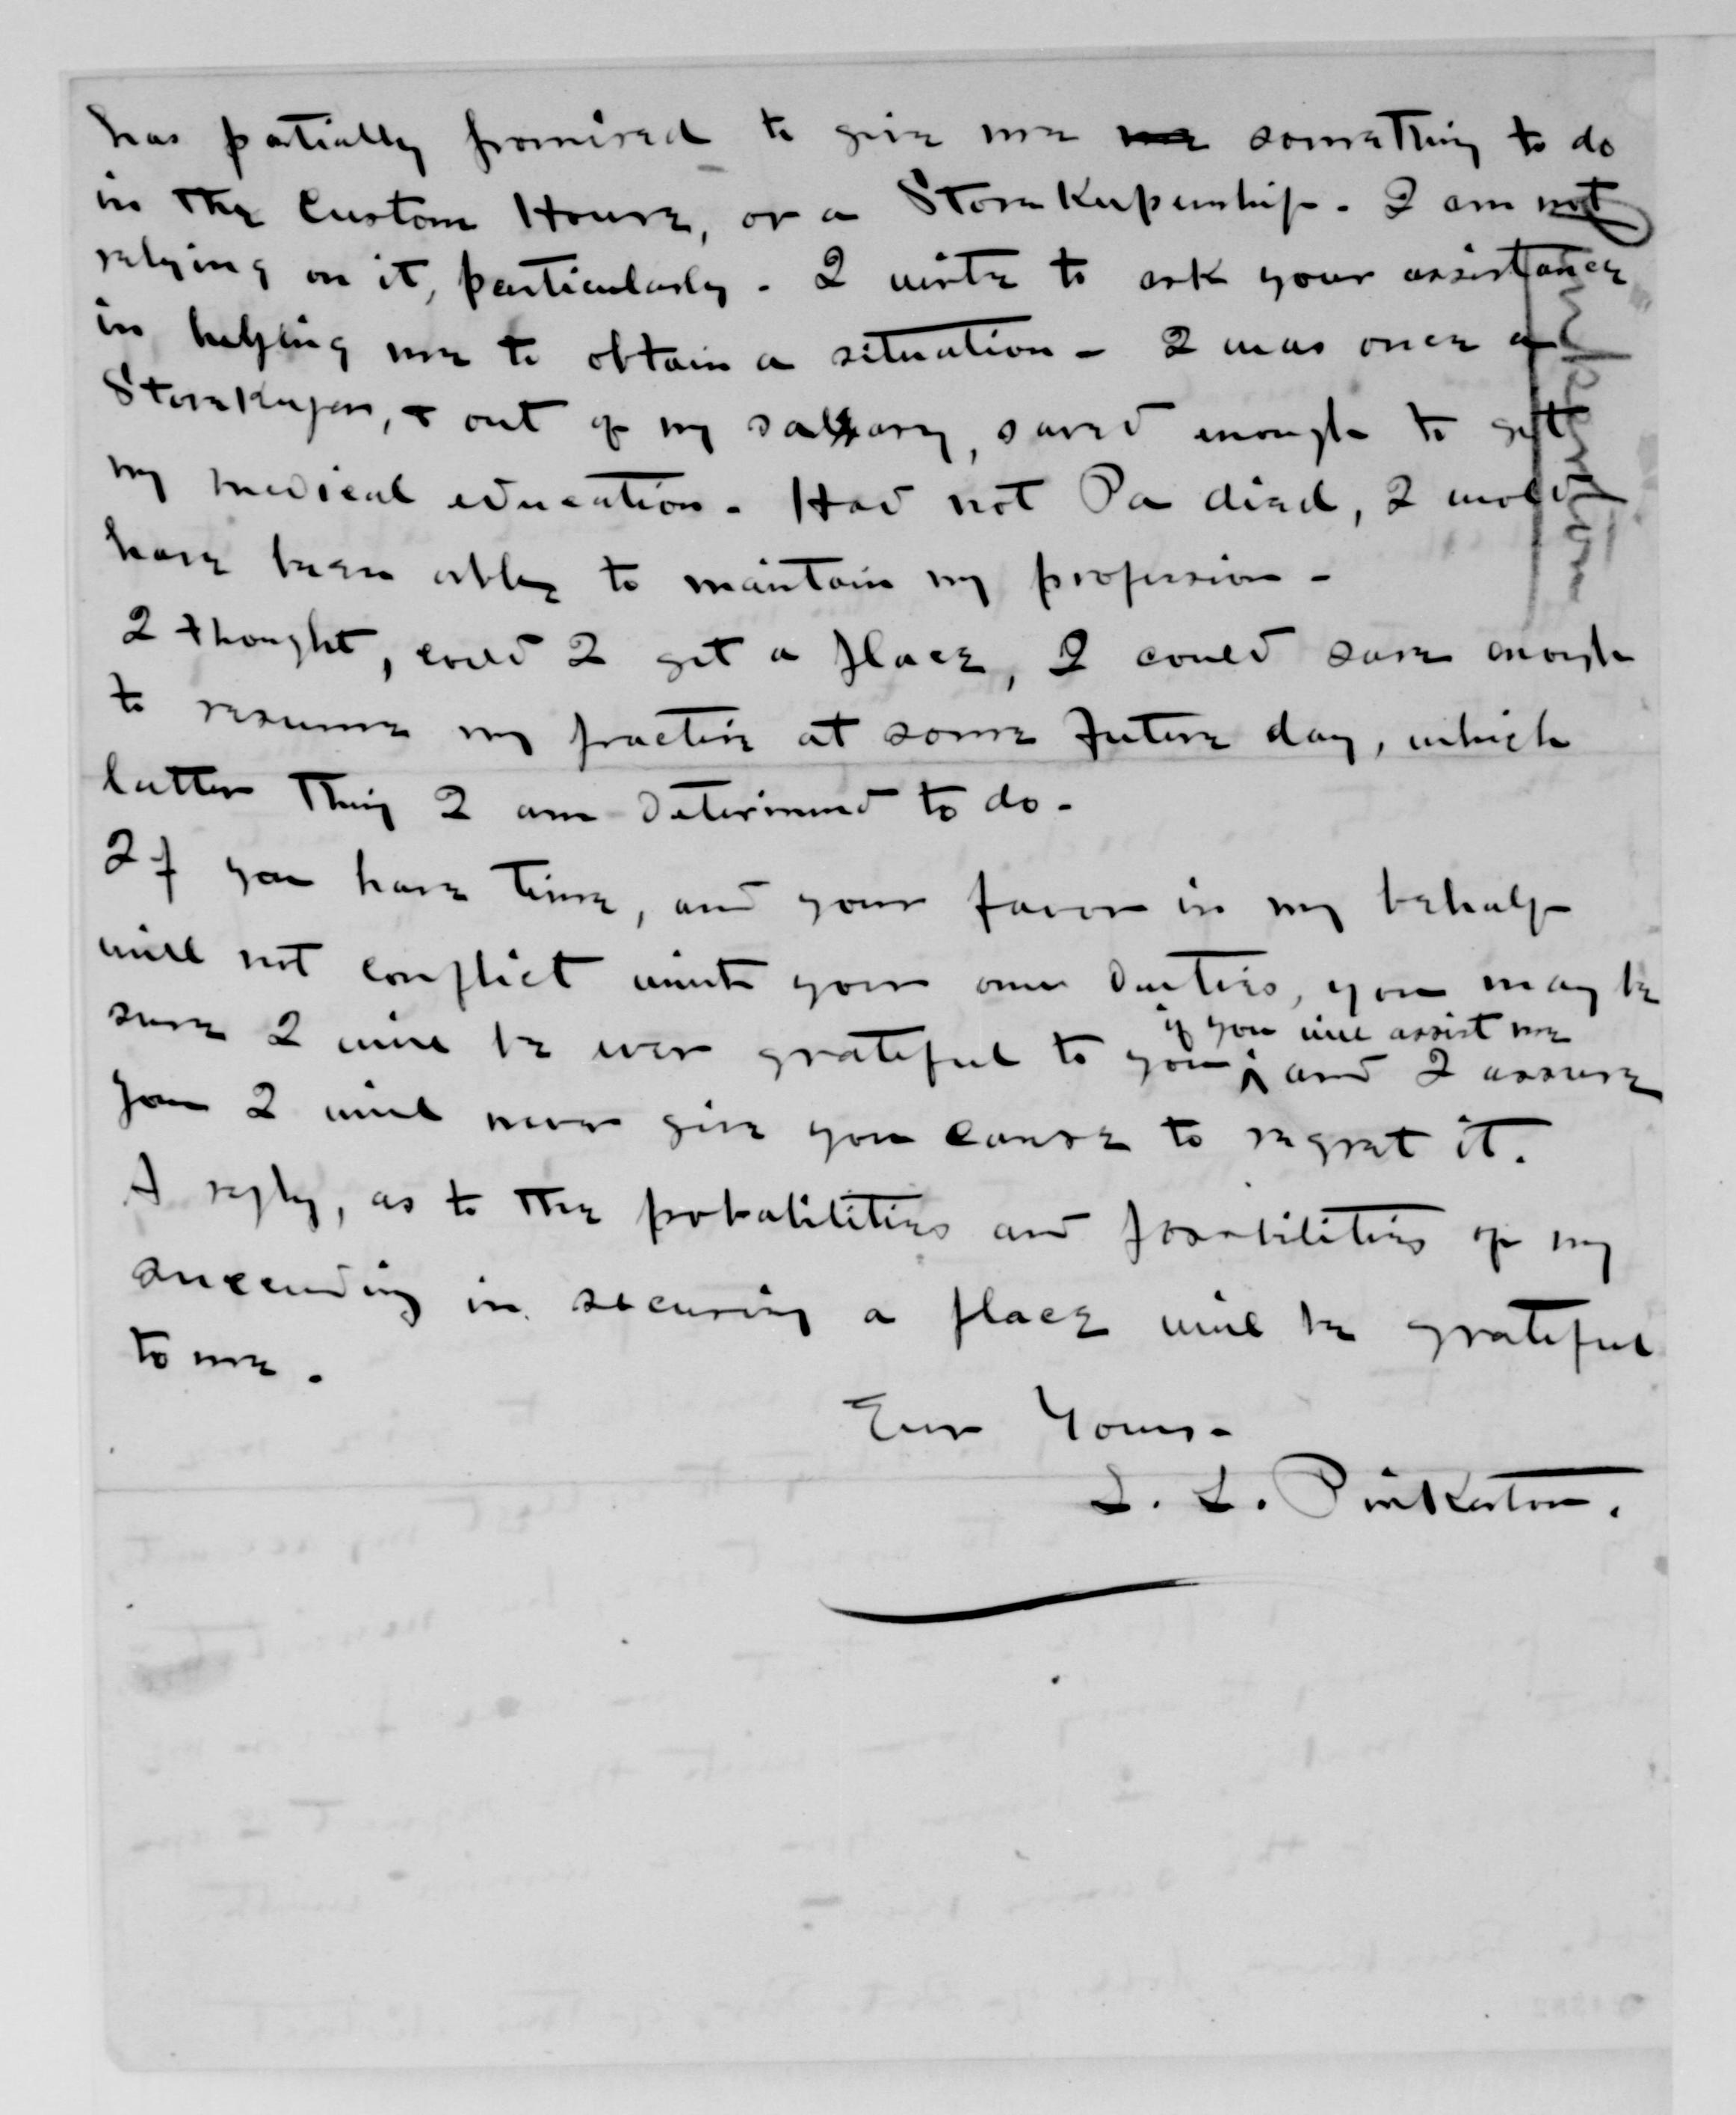 has partially promised to give me me something to do
in the Custom House, or a StoreKeepership. I am not
relying on it, particularly. I write to ask your assistance
in helping me to obtain a situation - I was once a
StoreKeeper, & out of my salary, saved enough to get
my medical education. Had not Pa died, I would
have been able to maintain my profession -
I thought, could I get a place, I could save enough
to resume my practice at some future day, which
latter thing I am determined to do.
If you have time, and your favor in my behalf
will not conflict with your own duties, you may be
sure I will be ever grateful to you
if you will assist me
and I assure
you I will never give you cause to regret it.
A reply, as to the probabilities and possibilities of my
succeeding in securing a place will be grateful
to me.
Ever Yours -
L. L. Pinkerton.